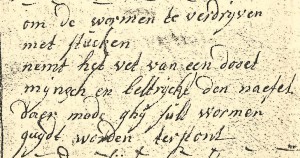 om de wormen te verdryven
met stucken
nemt het vet van een doot
mynsch en bestrycke den naefel
Daer mede ghy sult wormen
quydt worden terstont